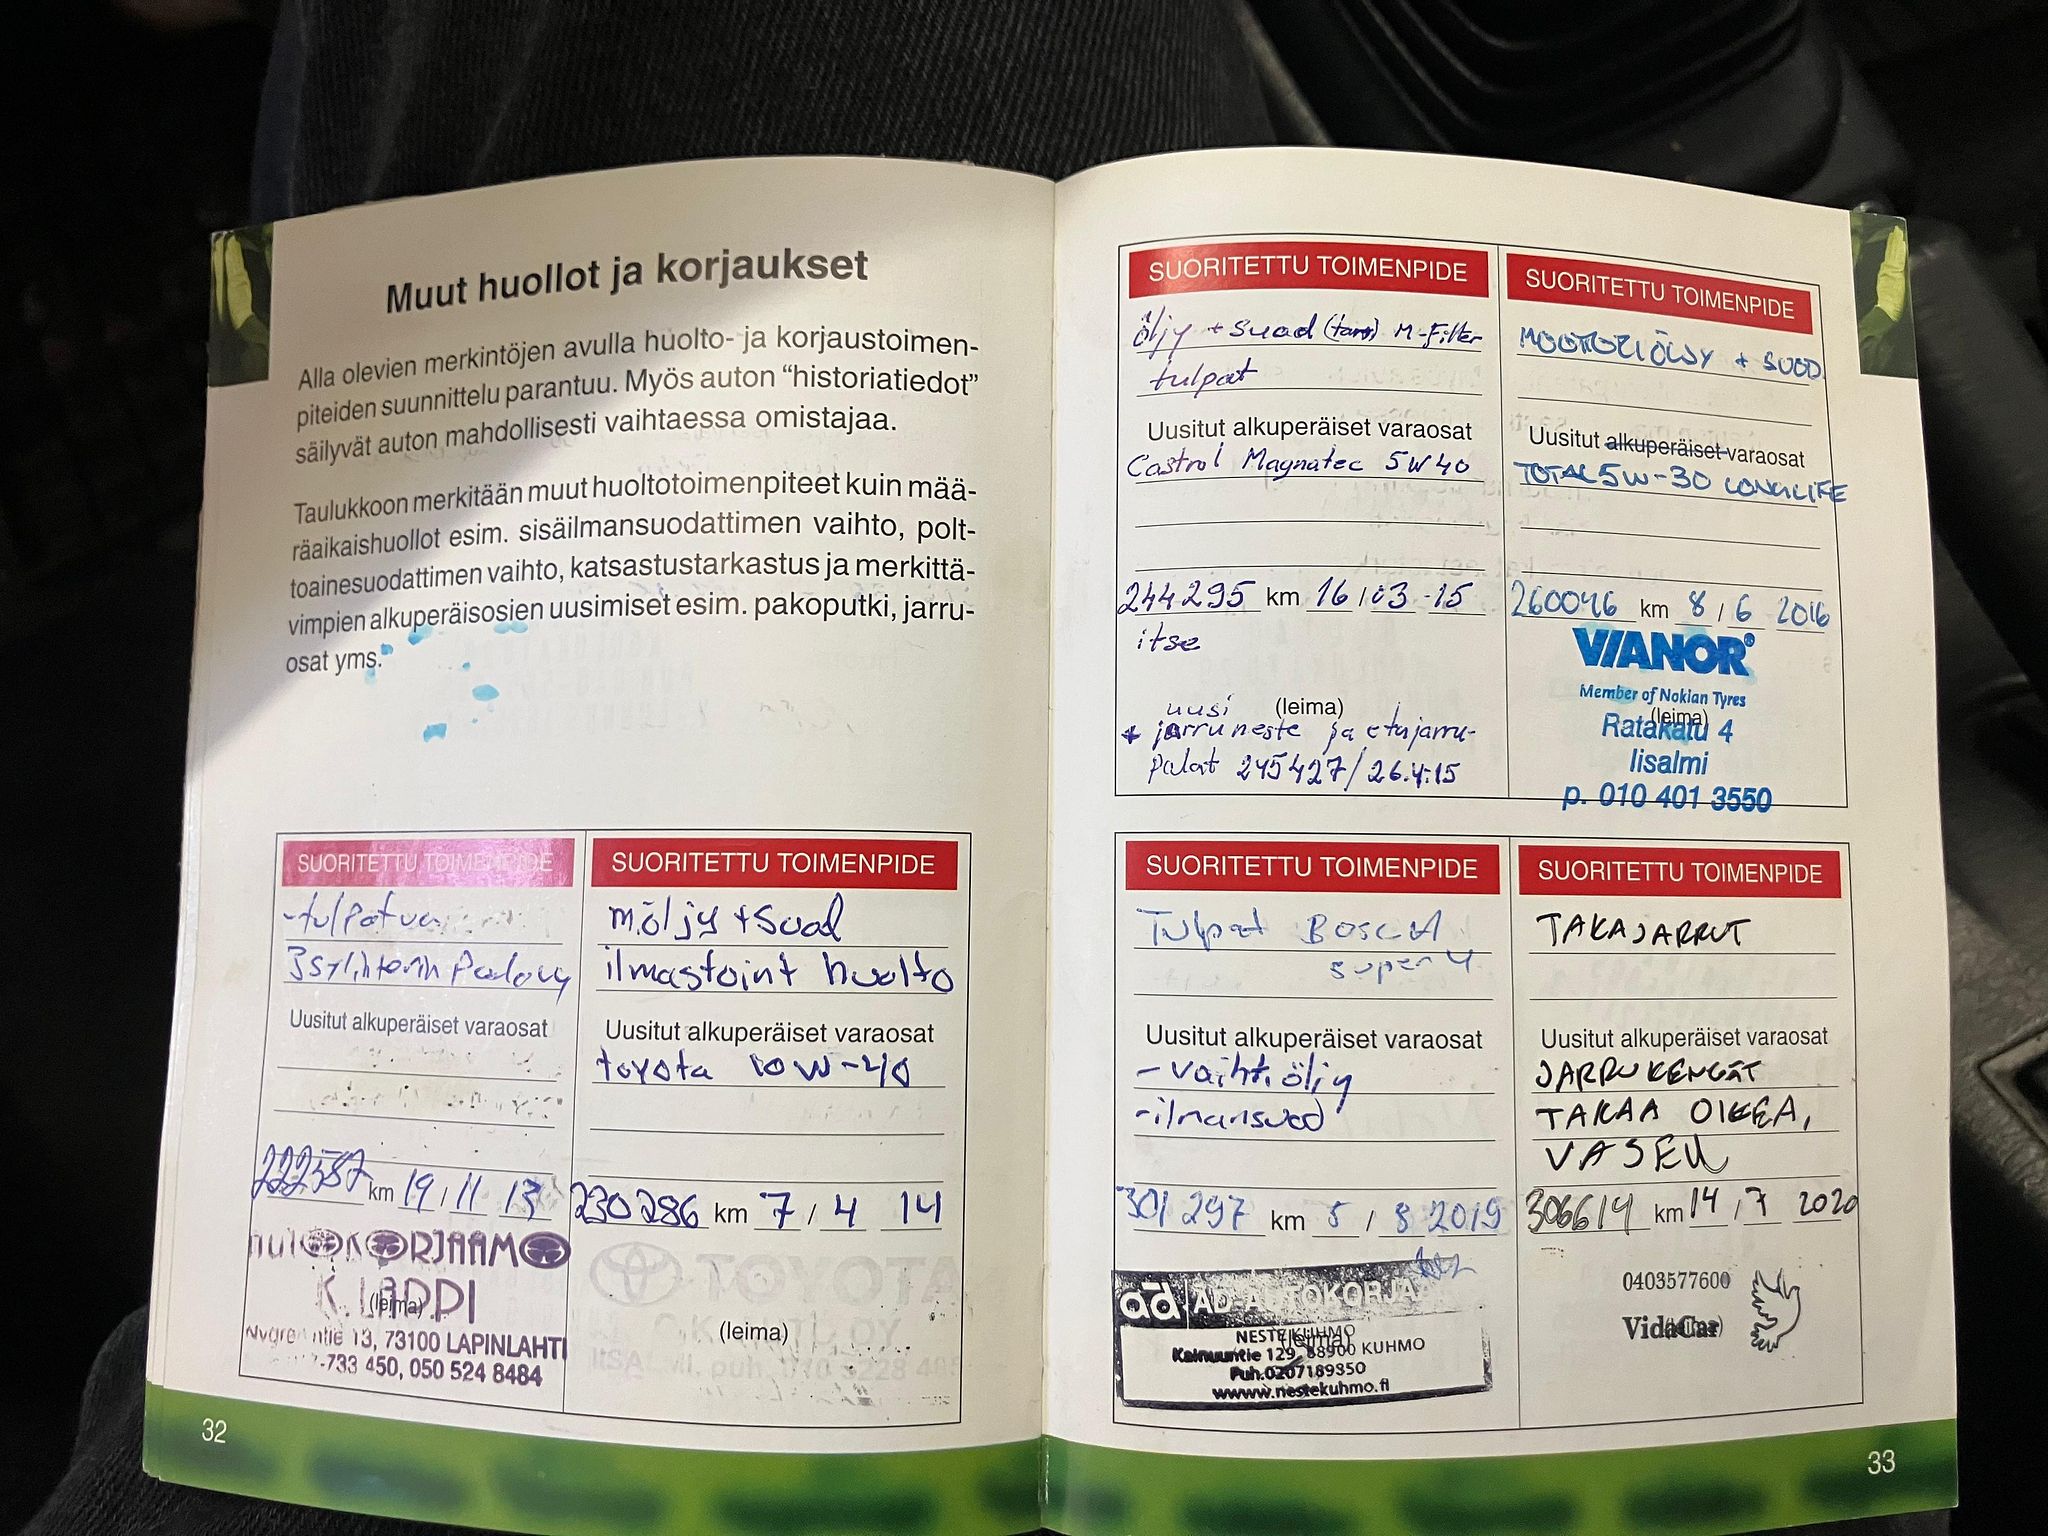 Muut huollot ja korjaukset
Alla olevien merkintöjen avulla huolto- ja korjaustoimen-
piteiden suunnittelu parantuu. Myös auton “historiatiedot”
säilyvät auton mahdollisesti vaihtaessa omistajaa.
Taulukkoon merkitään muut huoltotoimenpiteet kuin mää-
räaikaishuollot esim. sisäilmansuodattimen vaihto, polt-
toainesuodattimen vaihto, katsastustarkastus ja merkittä-
vimpien alkuperäisosien uusimiset esim. pakoputki, jarru-
osat yms.
SUORITETTU TOIMENPIDE
-tulpat
3syl
Uusitut alkuperäiset varaosat
222587 km 19 / 11 13
K. LAPPI
(leima)
13, 73100 LAPINLAHTI
-733 450, 050 524 8484
SUORITETTU TOIMENPIDE
möljy + suod
ilmastoint huolto
Uusitut alkuperäiset varaosat
toyota 10W-40
230286 km 7 / 4 14
TOYOTA
(leima)
32
SUORITETTU TOIMENPIDE
öljy + suod (tarv) M-Filter
tulpat
Uusitut alkuperäiset varaosat
Castrol Magnatec 5W40
244295 km 16 / 03 -15
itse
(leima)
uusi
+ jarruneste ja etujarru-
palat 245427 / 26.4.15
SUORITETTU TOIMENPIDE
MOOTTORIÖLJY + SUOD.
Uusitut alkuperäiset varaosat
TOTAL 5W-30 LONGLIFE
260046 km 8 / 6 2016
VIANOR®
Member of Nokian Tyres
(leima)
Ratakatu 4
Iisalmi
p. 010 401 3550
SUORITETTU TOIMENPIDE
Tulpat BOSCH
super 4
Uusitut alkuperäiset varaosat
- vaiht. öljy
- ilmansuod
301 297 km 5 / 8 2019
ad AD-AUTOKORJAAMO
NESTE KUHMO
(leima)
Kainuuntie 129, 88900 KUHMO
Puh.0207189350
www.nestekuhmo.fi
SUORITETTU TOIMENPIDE
TAKAJARRUT
Uusitut alkuperäiset varaosat
JARRUKENGÄT
TAKAA OIKEA,
VASEN
306614 km 14 / 7 2020
0403577600
VidaCar
(leima)
33